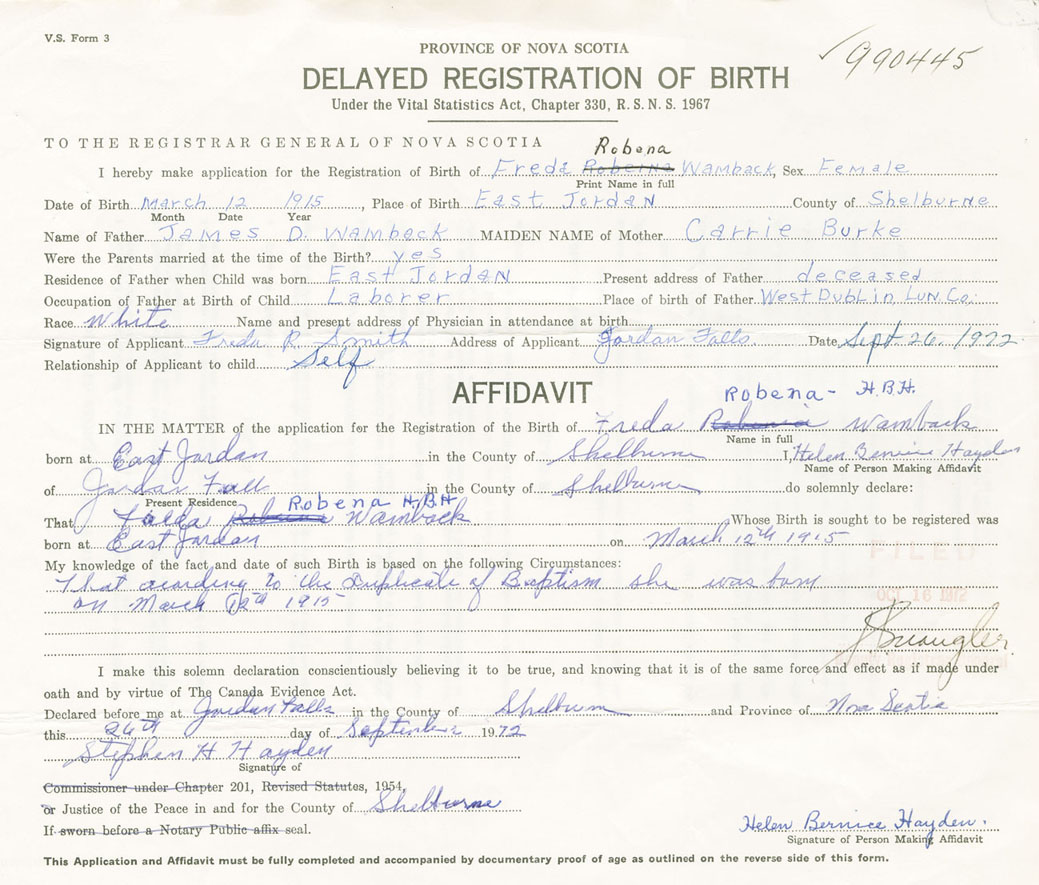 V.S. Form 3
PROVINCE OF NOVA SCOTIA
990445
DELAYED REGISTRATION OF BIRTH
Under the Vital Statistics Act, Chapter 330, R.S.N.S. 1967
TO THE REGISTRAR GENERAL OF NOVA SCOTIA
Robena
I hereby make application for the Registration of Birth of Freda Wamback, Sex Female
Print Name in full
Date of Birth March 12 1915, Place of Birth East Jordan County of Shelburne
Month Date Year
Name of Father James D. Wamback MAIDEN NAME of Mother Carrie Burke
Were the Parents married at the time of the Birth? yes
Residence of Father when Child was born East Jordan Present address of Father deceased
Occupation of Father at Birth of Child Laborer Place of birth of Father West Dublin Lun. Co.
Race White Name and present address of Physician in attendance at birth
Signature of Applicant Freda R. Smith Address of Applicant Jordan Falls Date Sept. 26, 1972
Relationship of Applicant to child Self
AFFIDAVIT
Robena - H.B.H.
IN THE MATTER of the application for the Registration of the Birth of Freda Wamback
Name in full
born at East Jordan in the County of Shelburne I, Helen Bernice Hayden
Name of Person Making Affidavit
of Jordan Fall in the County of Shelburne do solemnly declare:
Present Residence Robena H.B.H
That Freda Wamback Whose Birth is sought to be registered was
born at East Jordan on March 12th 1915
FILED
My knowledge of the fact and date of such Birth is based on the following Circumstances:
That acording to the Duplicate of Baptism she was born
on March 12th 1915
OCT 16 1972
I make this solemn declaration conscientiously believing it to be true, and knowing that it is of the same force and effect as if made under
oath and by virtue of The Canada Evidence Act.
Declared before me at Jordan Falls in the County of Shelburn and Province of Nova Scotia
this 26th day of September 1972
Stephen H Hayden
Signature of
Commissioner under Chapter 201, Revised Statutes, 1954,
or Justice of the Peace in and for the County of Shelburne
If sworn before a Notary Public affix seal.
Helen Bernice Hayden.
Signature of Person Making Affidavit
This Application and Affidavit must be fully completed and accompanied by documentary proof of age as outlined on the reverse side of this form.